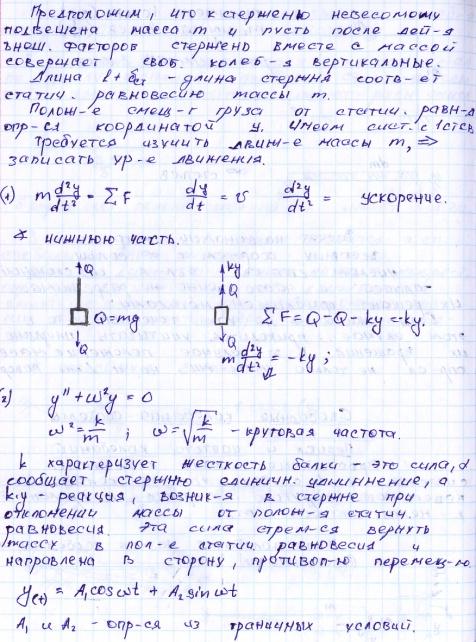 Предположим, что к стержню невесомому
подвешена масса m и пусть после дей-я
внеш. факторов стержень вместе с массой
совершает своб. колеб-я вертикальные.
Длина l + δст - длина стержня соотв-ет
статич. равновесию массы m.
Полож-е смещ-г груза от статич. равн-я
опр-ся координатой y. Имеем сист. с 1 ст. св.
Требуется изучить движ-е массы m, ⇒
записать ур-е движения.
(1) m d²y/dt² = ΣF dy/dt = υ d²y/dt² = ускорение.
нижнюю часть.
Q ky
Q
Q = mg ΣF = Q - Q - ky = -ky.
Q Q
m d²y/dt² = -ky ;
(2) y'' + ω²y = 0
ω² = k/m ; ω = √k/m - круговая частота.
k характеризует жесткость балки - это сила,
сообщает стержню единичн. удлиннение, а
k·y - реакция, возник-я в стержне при
отклонении массы от полож-я статич.
равновесия. Эта сила стрем-ся вернуть
массу в пол-е статич. равновесия и
направлена в сторону, противоп-ю перемещ-ю.
y(t) = A₁cosωt + A₂sinωt
A₁ и A₂ - опр-ся из граничных условий.